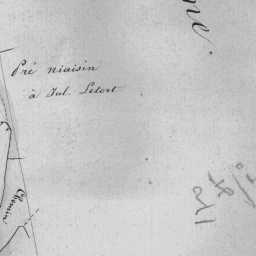 Pré niaisin
à Jul. Letort
Chemin
ne.